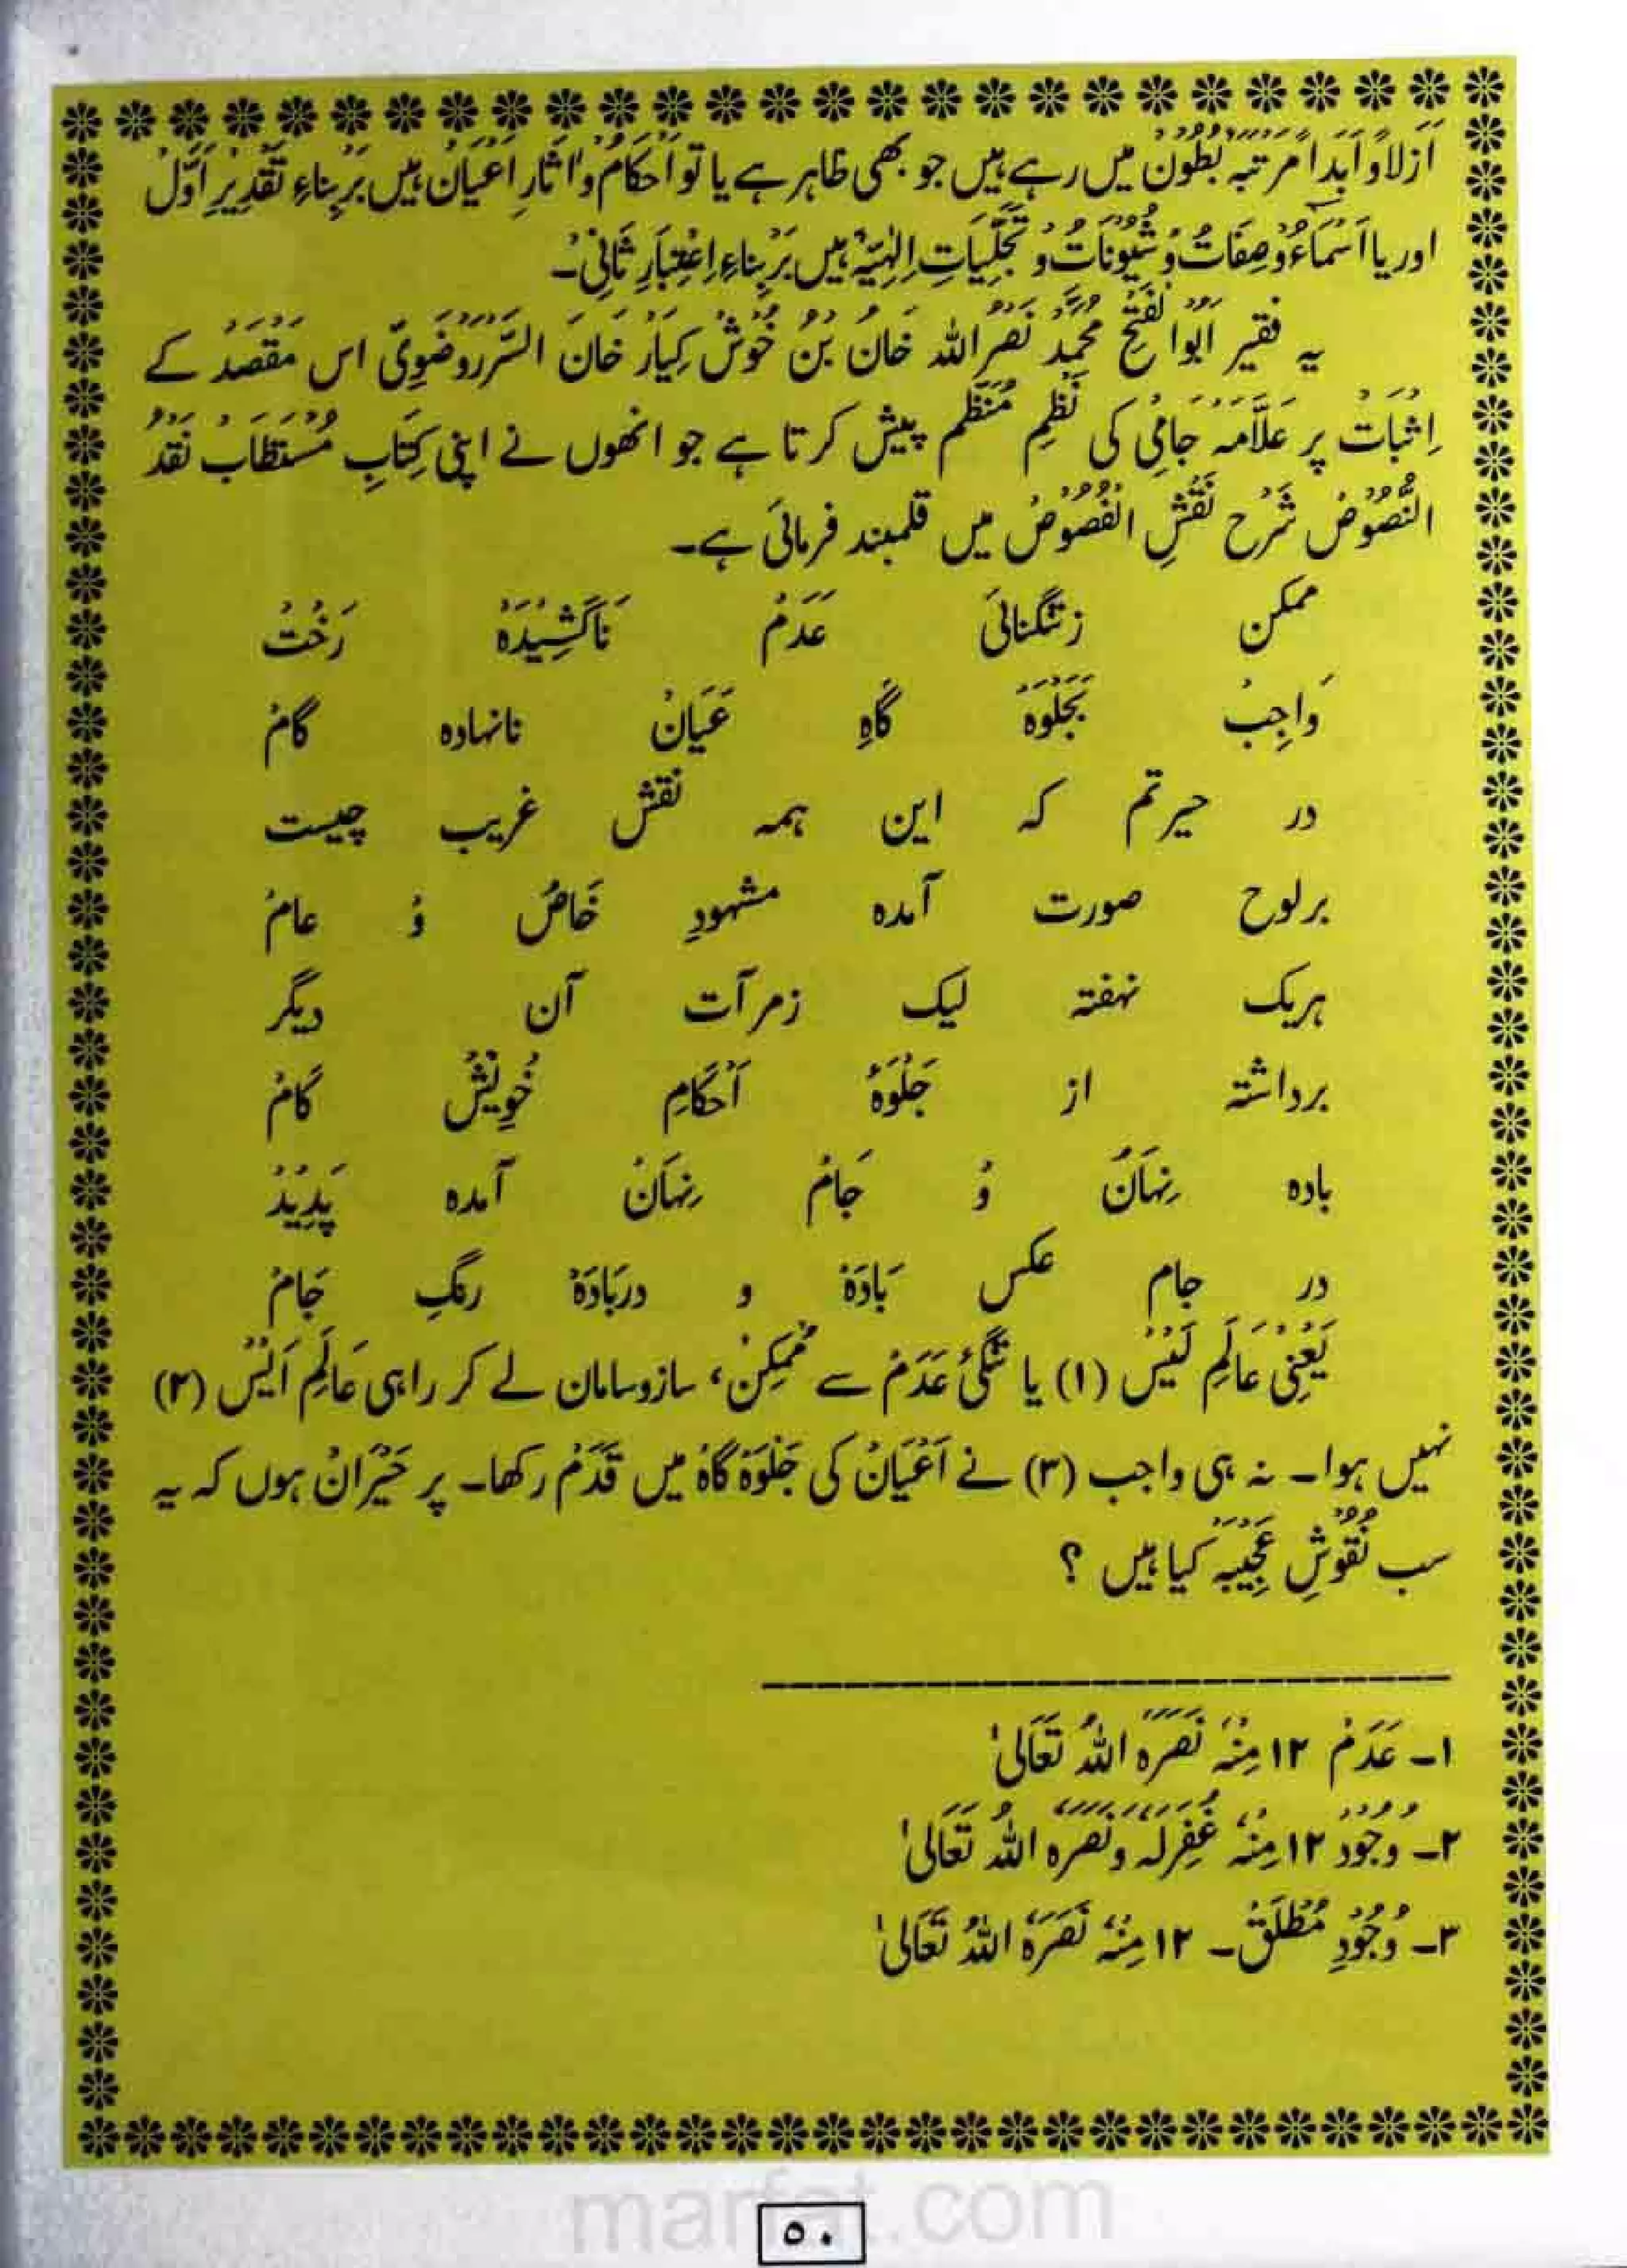 اَزلاًوَاَبَداً مَرتبہ بُطُونْ میں رہے ہیں جو بھی ظاہر ہے یا تو اَحکامْ وَاٰثارِ اَعْیَانْ ہیں بَر بِناءِ تَقْدِیرِ اَوَّلْ
اور یا اَسْمَاءُ وَ صِفَاتْ وُ شُیُوْنَاتْ وُ تَجَلِّیَاتِ اِلٰہِیَّہْ ہیں بَر بِناءِ اِعْتِبَارِ ثَانِیْ۔
یہ فقیر اَبُوْ الْفَتْح مُحَمَّدْ نَصْرُاللہ خَانْ بِنْ خُوْش کِیَارْ خَانَ السَّرَرَوْضَوِیْ اس مَقْصَدْ کے
اِثْبَاتْ پر عَلَّامَہ جَامِیْ کی نَظْمِ مُنَظَّم پیش کرتا ہے جو انھوں نے اپنی کِتَابِ مُسْتَطَابْ نَقْدُ
النُّصُوْصْ شَرْح نَقْشِ الْفُصُوْصْ میں قلمبند فرمائی ہے۔
ممکن زتنگنائی عَدَمْ نَاکَشِیْدَہْ رَخْتْ
وَاجِبْ بَجَلْوَہْ گَاہِ عَیَانْ نانہادہ گامْ
در حیرتم کہ این ہمہ نقش غریب چیست
برلوح صورت آمدہ مشہودِ خَاصْ وُ عامْ
ہریک نہفتہ لیک زمرآت آن دیگر
برداشتہ از جَلْوَۂ اَحْکَامِ خُوِیْشْ کَامْ
بادہ نِہَانْ وُ جَامْ نِہَانْ آمدہ پَدِیْدْ
در جام عکس بَادَہْ و دربَادَہْ رنگِ جَامْ
یَعْنِی عَالَمِ لَیْسْ (۱) یا تَنْگیٔ عَدَمْ سے مُمْکِنْ، سازوسامان لے کر راہی عَالَمِ اَیْسْ (۲)
نہیں ہوا۔ نہ ہی واجب (۳) نے اَعْیَانْ کی جَلْوَہْ گَاہْ میں قَدَمْ رکھا۔ پر حَیْرَانْ ہوں کہ یہ
سب نُقُوْشِ عَجِیْبَہْ کیا ہیں ؟
۱۔ عَدَمْ ۱۲ مِنْہُ نَصَرَہُ اللہُ تَعَالٰی
۲۔ وُجُوْدْ ۱۲ مِنْہُ غُفِرَلَہُ وَنَصَرَہُ اللہُ تَعَالٰی
۳۔ وُجُوْدِ مُطْلَقْ۔ ۱۲ مِنْہُ نَصَرَہُ اللہُ تَعَالٰی
marfat.com
۵۰